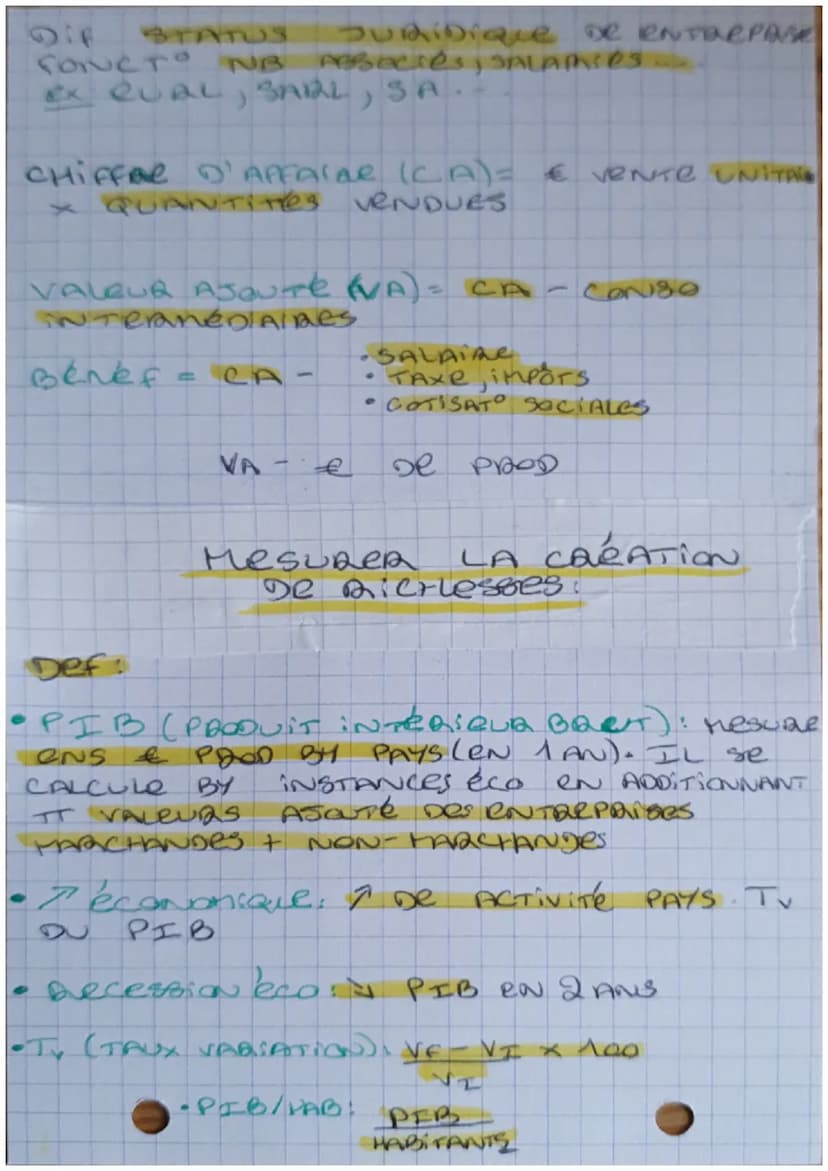 Dif STATUS JURiDique De ENTREPRISE
FONCT° NB ASSOCiés, SALARiés...
ex EURL, SARL, SA...
CHiFFRe D'AFFAiRe (CA) = € VENTE UNiTAiRe
x QUANTiTés VENDUES
VALeUR AJOUTé (VA) = CA - CONSO
iNTeRMéDiAiRes
BéNéF = CA - • SALAiRe
• TAXe, iMPÔTS
• COTiSAT° SOCiALES
VA - € De PROD
MESUReR LA CRéATiON
De RiCHesses:
Def:
• PIB (PRODUiT iNTéRieUR BRUT): MesuRe
ENS € PROD BY PAYS (EN 1 AN). IL se
CALCULe BY iNSTANCes éco eN ADDiTiONNANT
TT VALeURS AJOUTé Des eNTRePRises
MARCHANDes + NON-MARCHANDes
• ↗ éCONOMiQUe: ↗ De ACTiViTé PAYS. Tv
DU PIB
• Recession éco: ↘ PIB eN 2 ANS
• Tv (TAUX VARiATiON): VF - VI x 100
VI
• PIB/HAB: PIB
HABiTANTS